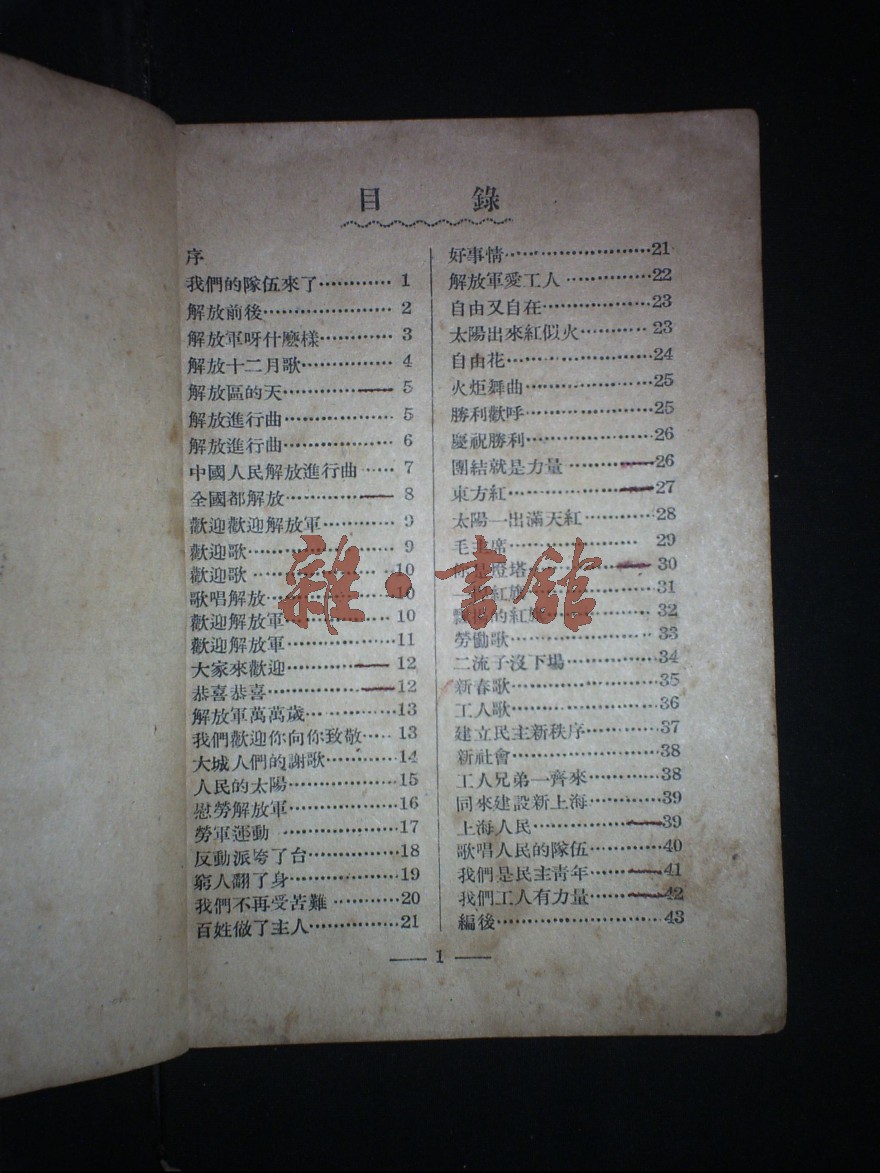 目 錄
序
我們的隊伍來了············ 1
解放前後·················· 2
解放軍呀什麽樣············ 3
解放十二月歌·············· 4
解放區的天················ 5
解放進行曲················ 5
解放進行曲················ 6
中國人民解放進行曲······ 7
全國都解放················ 8
歡迎歡迎解放軍············ 9
歡迎歌···················· 9
歡迎歌····················10
歌唱解放··················10
歡迎解放軍················10
歡迎解放軍················11
大家來歡迎················12
恭喜恭喜··················12
解放軍萬萬歲··············13
我們歡迎你向你致敬······13
大城人們的謝歌············14
人民的太陽················15
慰勞解放軍················16
勞軍運動··················17
反動派垮了台··············18
窮人翻了身················19
我們不再受苦難············20
百姓做了主人··············21
好事情····················21
解放軍愛工人··············22
自由又自在················23
太陽出來紅似火············23
自由花····················24
火炬舞曲··················25
勝利歡呼··················25
慶祝勝利··················26
團結就是力量··············26
東方紅····················27
太陽一出滿天紅············28
毛主席····················29
你是燈塔··················30
紅旗··················31
的紅旗··············32
勞働歌····················33
二流子沒下場··············34
新春歌····················35
工人歌····················36
建立民主新秩序············37
新社會····················38
工人兄弟一齊來············38
同來建設新上海············39
上海人民··················39
歌唱人民的隊伍············40
我們是民主青年············41
我們工人有力量············42
編後······················43
— 1 —
雜·書館